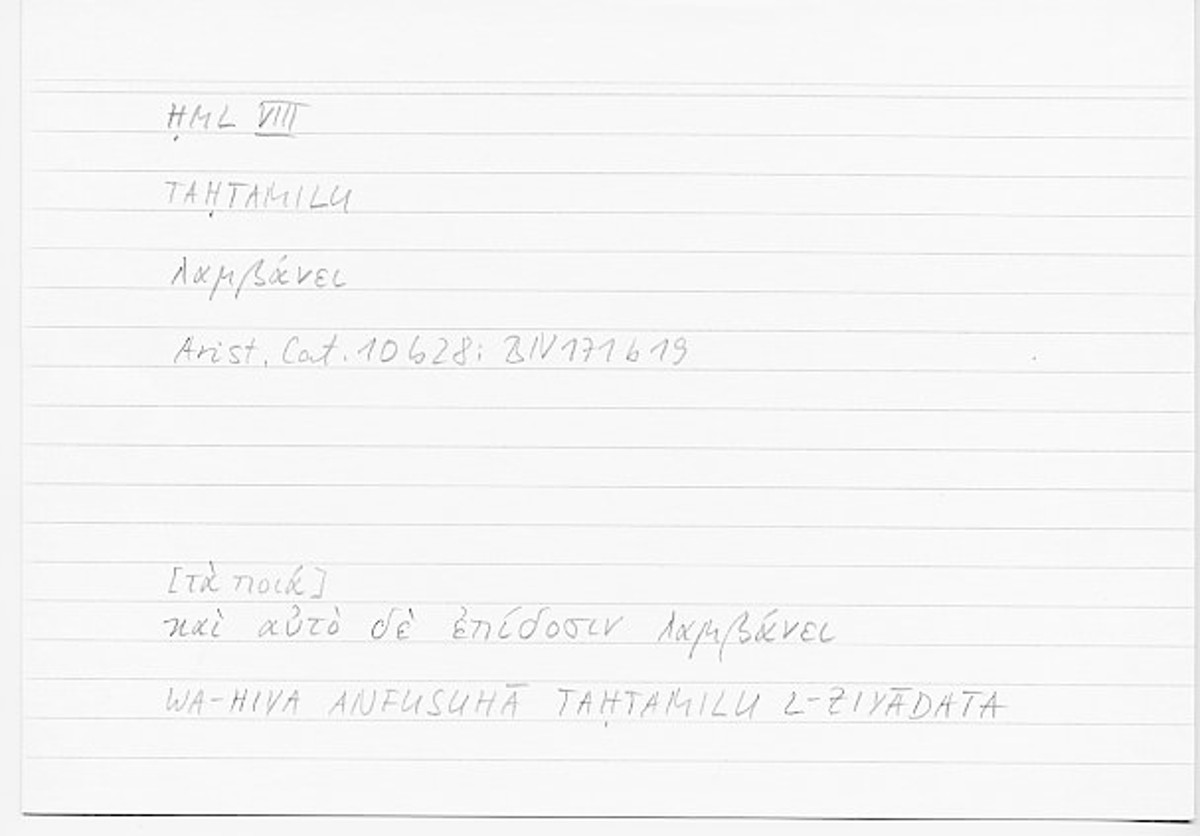 ḤML VIII
TAḤTAMILU
λαμβάνει
Arist. Cat. 10b28; BIV171b19
[τὰ ποιά]
καὶ αὐτὸ δὲ ἐπίδοσιν λαμβάνει
WA-HIYA ANFUSUHĀ TAḤTAMILU L-ZIYĀDATA